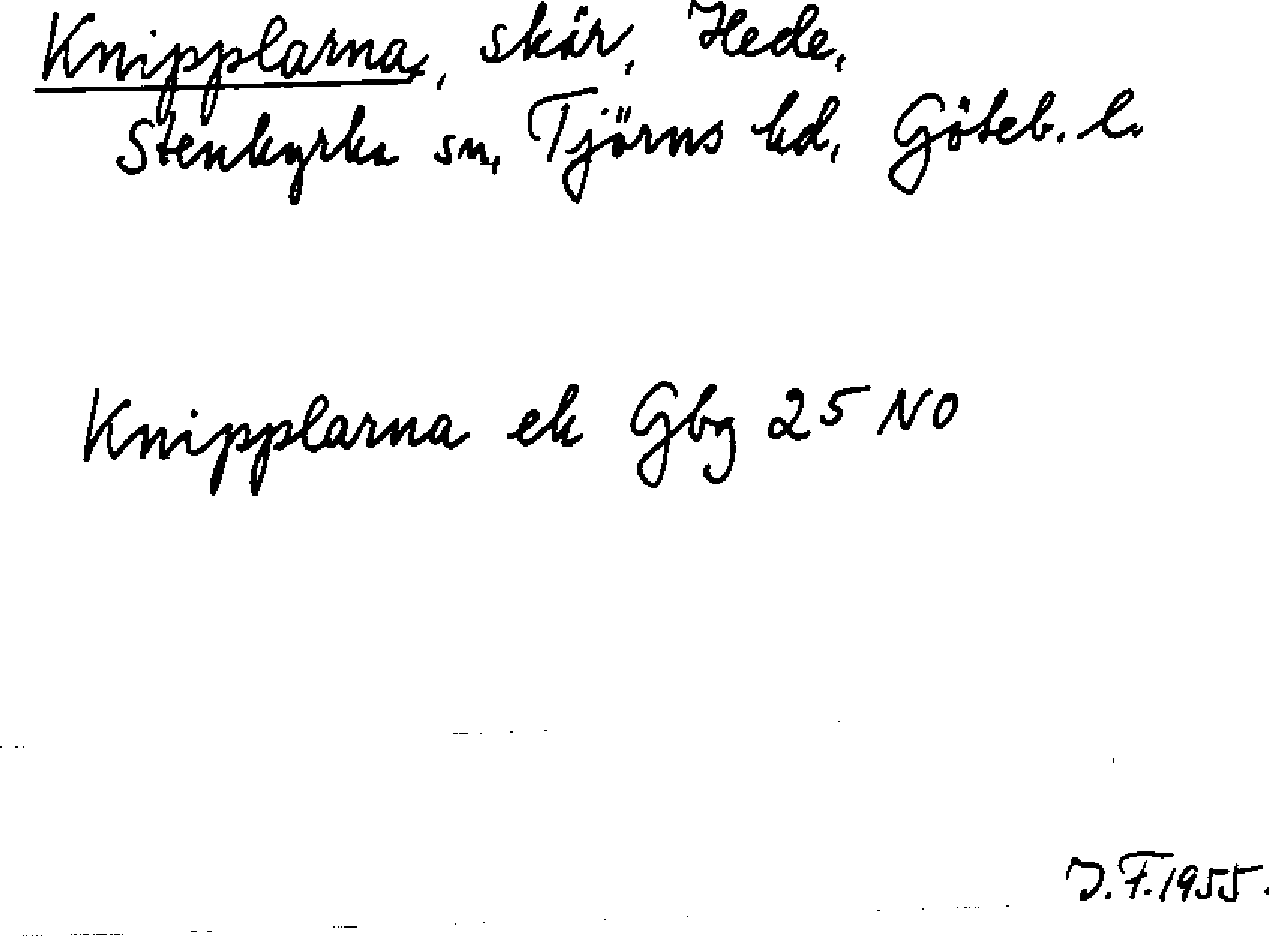 Knipplarna, skär, Hede,
Stenkyrka sn, Tjörns hd, Göteb. l.
Knipplarna ek Gbg 25 NO
J.F. 1955.